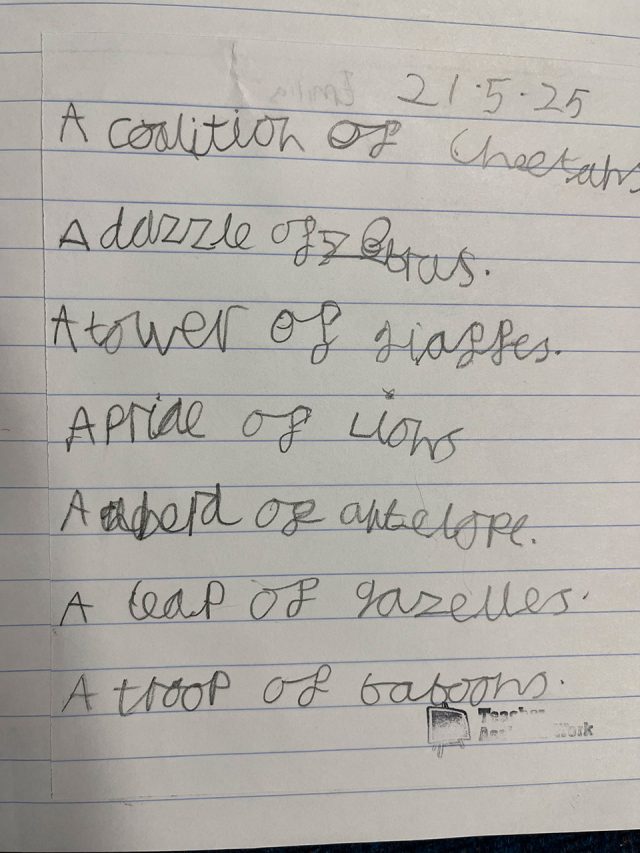 21.5.25
A coalition of Cheetahs
A dazzle of zebras.
A tower of giaffes.
A pride of lions
A herd of antelope.
A leap of gazelles.
A troop of baboons.
Teacher
Work